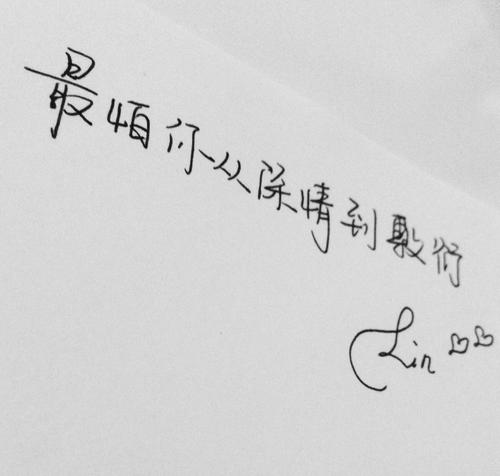 最怕你从深情到敷衍
Lin ♡♡